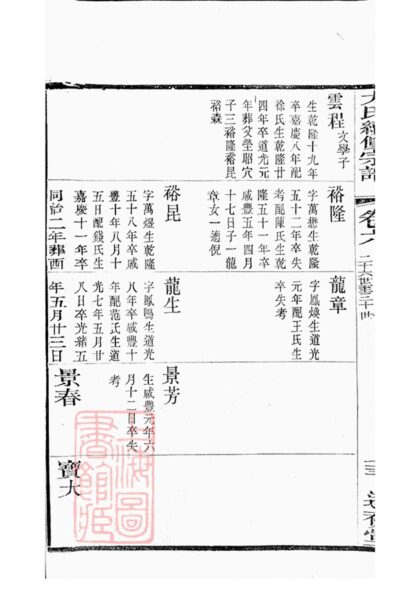 宗譜
卷六
雲程文學子
生乾隆十九年
卒嘉慶八年配
徐氏生乾隆廿
四年卒道光元
年葬父塋昭穴
子三裕隆裕昆
裕森
裕隆
字萬懋生乾隆
五十二年卒失
考配陳氏生乾
隆五十一年卒
咸豐五年四月
十七日子一龍
章女一適倪
龍章
字鳳煥生道光
元年配王氏生
卒失考
裕昆
字萬煜生乾隆
五十八年卒咸
豐十年八月十
五日配錢氏生
嘉慶十一年卒
同治二年葬酉
龍生
字鳳鳴生道光
八年卒咸豐十
年配范氏生道
光七年五月廿
八日卒光緒五
年五月廿三日
景芳
生咸豐元年六
月十二日卒失
考
景春
寶大